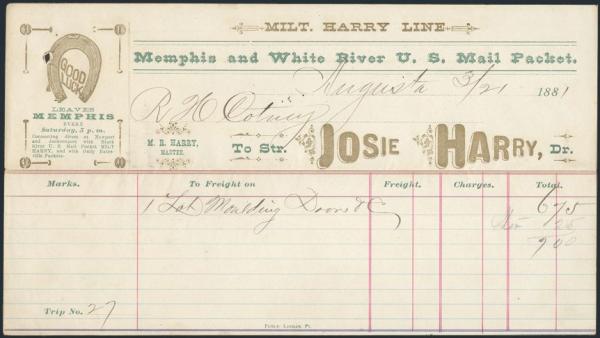 MILT. HARRY LINE
Memphis and White River U. S. Mail Packet.
GOOD LUCK
LEAVES
MEMPHIS
EVERY
Saturday, 5 p. m.
Connecting above at Newport
and Jacksonport with Black
River U. S. Mail Packet MILT
HARRY, and with Daily Bates-
ville Packets.
Augusta 3/21 1881
R H
M. R. HARRY,
MASTER.
To Str. JOSIE HARRY, Dr.
Marks. To Freight on Freight. Charges. Total.
1 Lot Moulding Doors &C 6 75
25
7 00
Trip No. 27